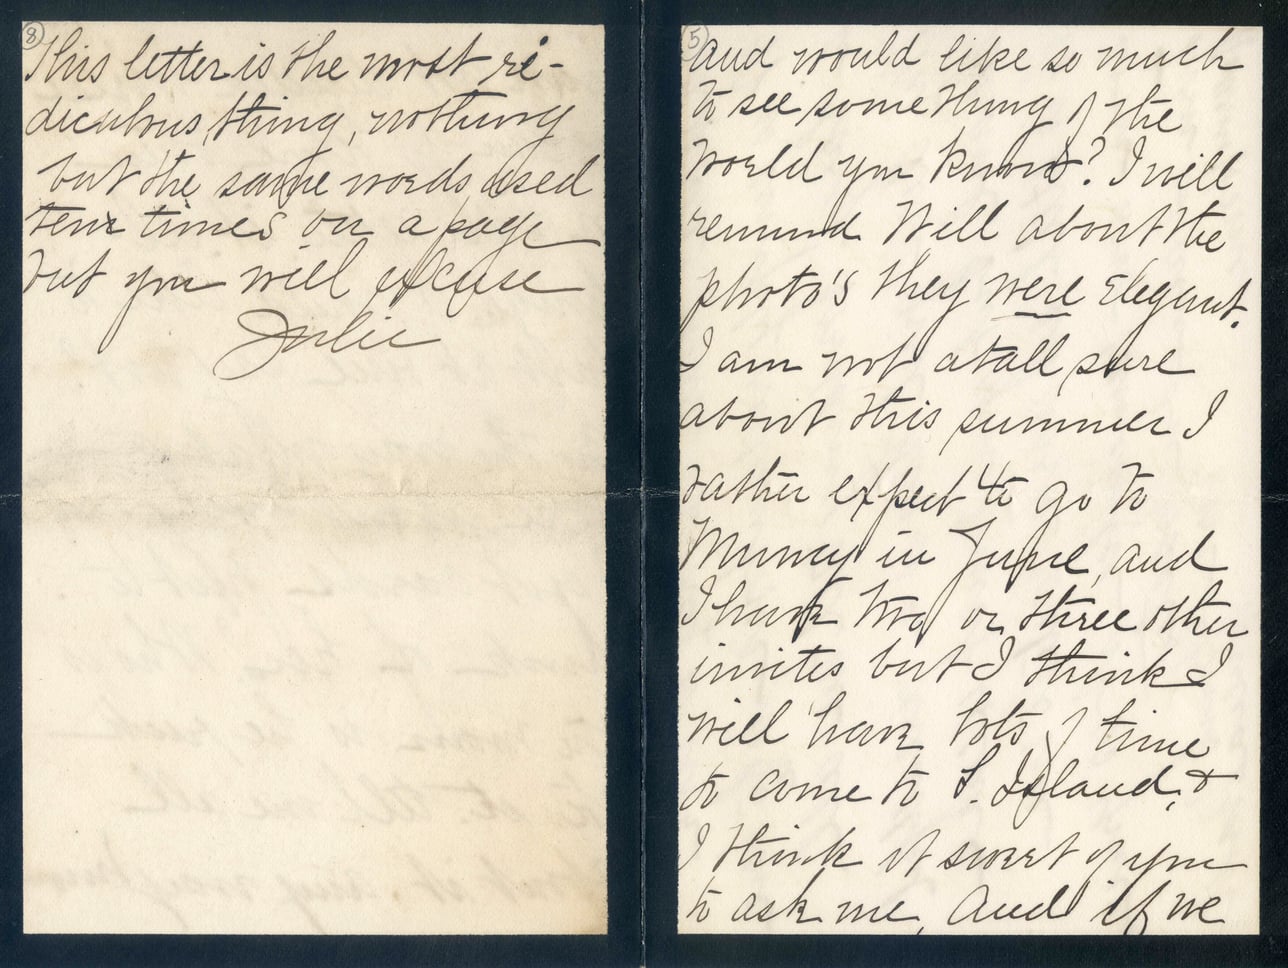 8
This letter is the most ri-
diculous thing, nothing
but the same words used
ten times on a page
but you will excuse
Julie
5
and would like so much
to see something of the
world you know? I will
remind Will about the
photo's they were Elegant.
I am not atall sure
about this summer I
rather expect to go to
Muncy in June, and
I have two or three other
invites but I think I
will have lots of time
to come to S. Island, &
I think it sweet of you
to ask me, And if we